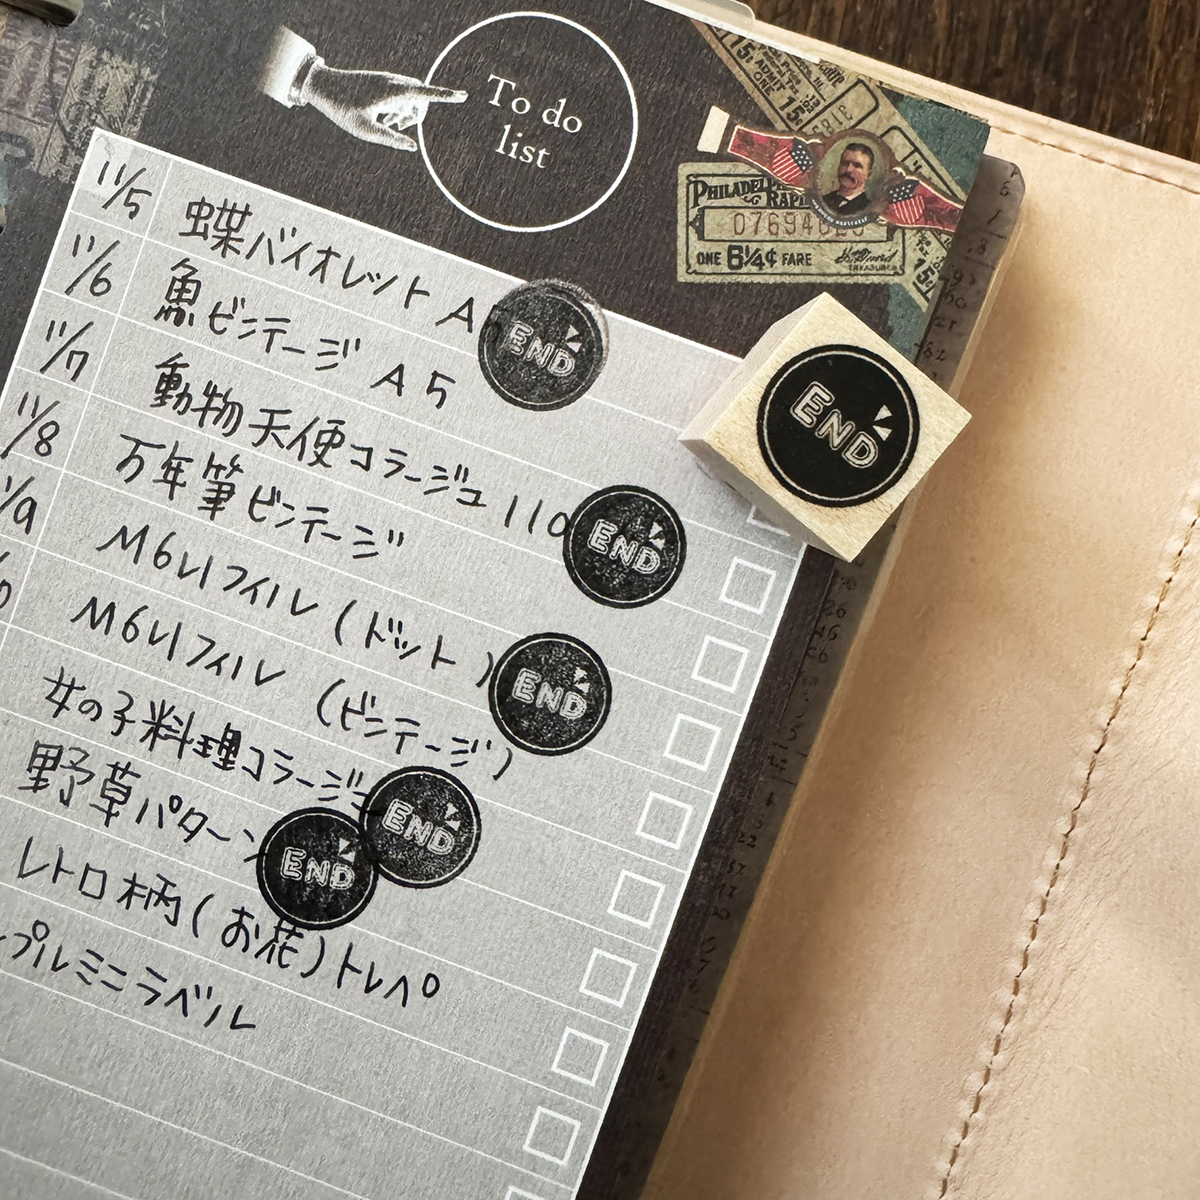 To do
list
15¢
ADMIT
ONE
PHILADEL
RAPI
ONE 6¼¢ FARE
TREASURER
15¢
11/5 蝶バイオレット A
END
11/6 魚ビンテージ A5
11/7 動物天使コラージュ 110
END
11/8 万年筆ビンテージ
11/9 M6リフィル (ドット)
END
M6リフィル (ビンテージ)
女の子料理コラージュ
END
野草パターン
END
レトロ柄(お花)トレペ
プルミニラベル
END